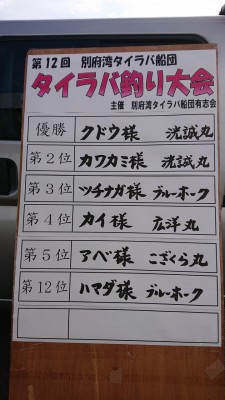 第12回 別府湾タイラバ船団
タイラバ釣り大会
主催 別府湾タイラバ船団有志会
優勝 クドウ様 洸誠丸
第2位 カワカミ様 洸誠丸
第3位 ツチナガ様 ブルーホーク
第4位 カイ様 広洋丸
第5位 アベ様 こざくら丸
第12位 ハマダ様 ブルーホーク